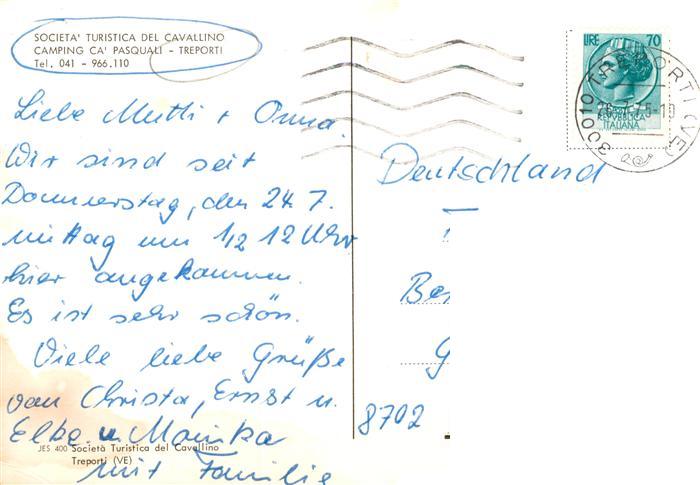 SOCIETA' TURISTICA DEL CAVALLINO
CAMPING CA' PASQUALI - TREPORTI
Tel. 041 - 966.110
Liebe Mutti + Onna.
Wir sind seit
Donnerstag, den 24.7.
mittag um 1/2 12 Uhr
hier angekommen.
Es ist sehr schön.
Viele liebe Grüße
von Christa, Ernst u.
Elke u. Monika
mit Familie
JES 400 Società Turistica del Cavallino
Treporti (VE)
LIRE 70
REPUBBLICA
ITALIANA
30010 TREPORTI (VE)
Deutschland
8702